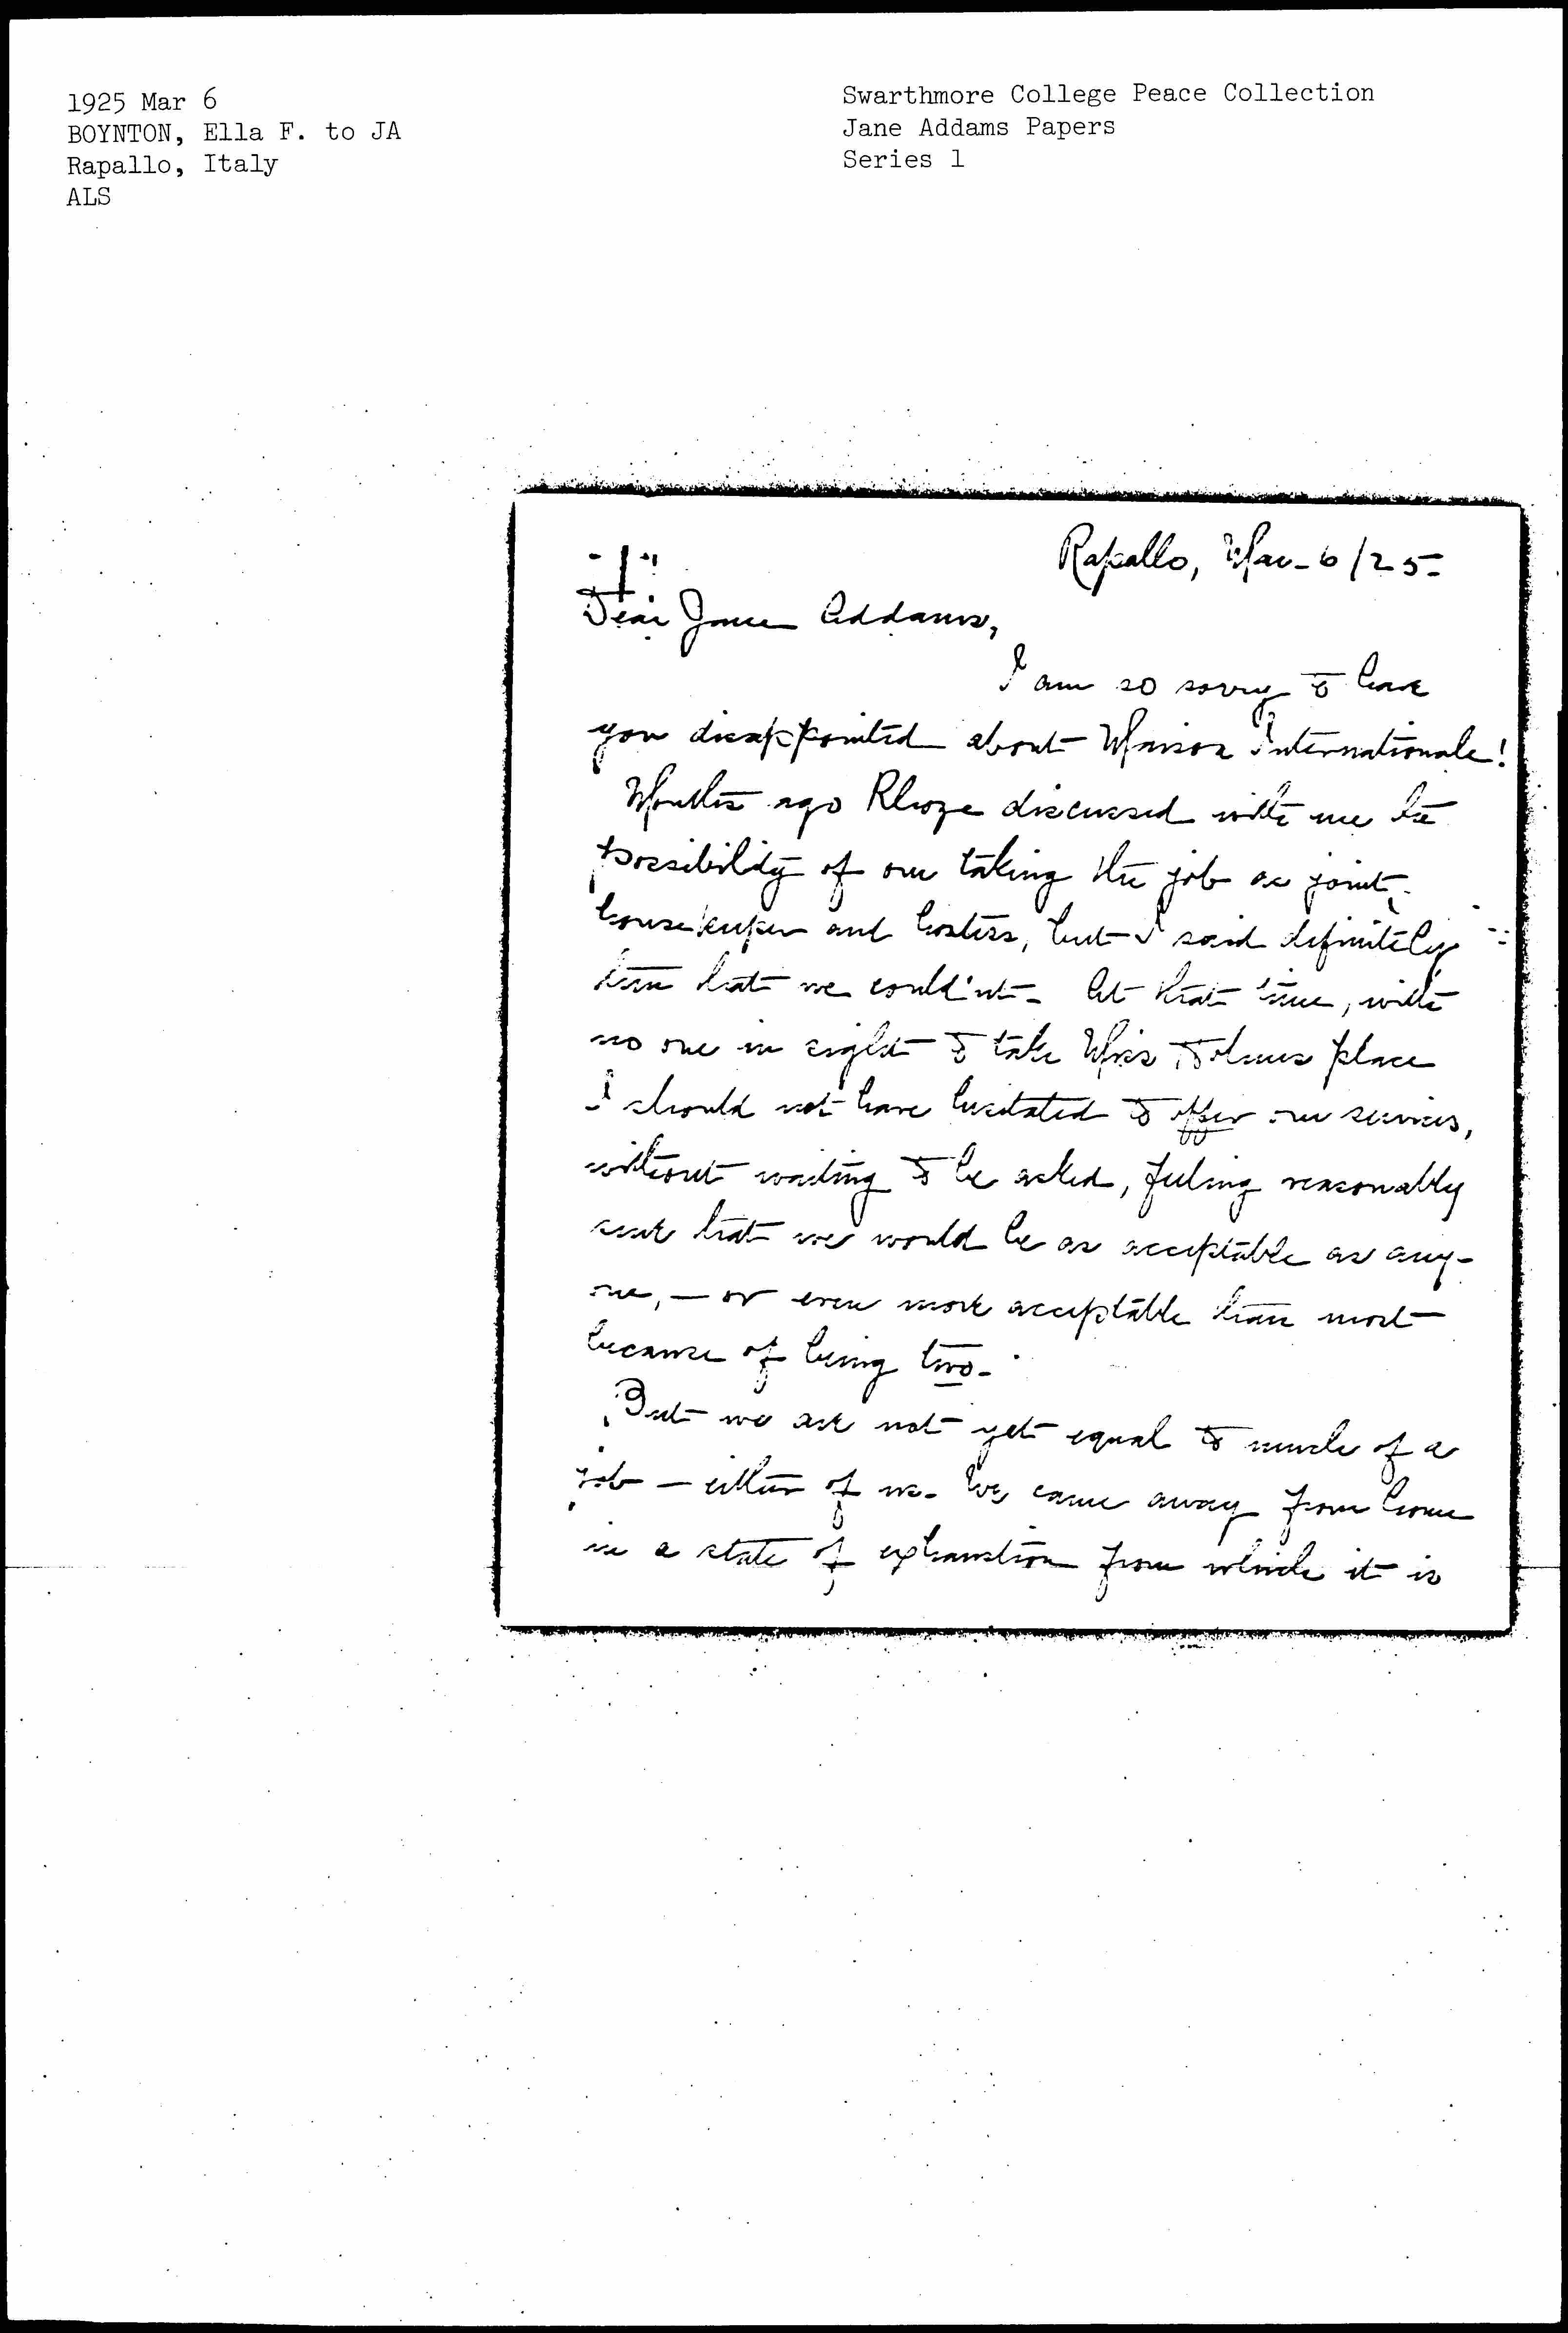 1925 Mar 6
BOYNTON, Ella F. to JA
Rapallo, Italy
ALS
Swarthmore College Peace Collection
Jane Addams Papers
Series 1
Rapallo, Mar-6/25-
Dear Jane Addams,
I am so sorry to have
you disappointed about Maison Internationale!
Months ago discussed with me the
possibility of our taking the job as joint-
housekeeper and hostess, but I said definitely
then that we could'nt- At that time, with
no one in sight to take Miss place
I should not have hesitated to offer our services,
without waiting to be asked, feeling reasonably
sure that we would be as acceptable as any-
one, — or even more acceptable than most
because of being two-
But we are not yet equal to much of a
job — either of us- We came away from home
in a state of exhaustion from which it is